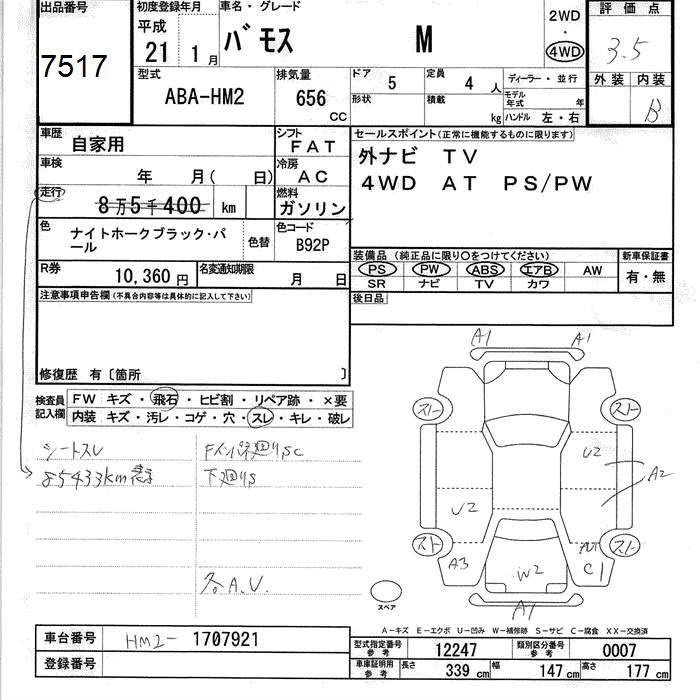 出品番号
7517
初度登録年月
平成
21年 1月
車名・グレード
バモス M
2WD
・
4WD
評価点
3.5
外装 内装
B
型式
ABA-HM2
排気量
656 CC
ドア
5
定員
4 人
形状
積載
kg
ディーラー・並行
モデル年式 年
ハンドル 左・右
車歴
自家用
シフト
FAT
車検
年 月( 日)
冷房
AC
走行
8万5千400 km
燃料
ガソリン
色
ナイトホークブラック・パール
色替
色コード
B92P
R券
10,360円
名変通知期限
月 日
セールスポイント(正常に機能するものに限ります)
外ナビ TV
4WD AT PS/PW
装備品(純正品に限り○をつけてください)
新車保証書
PS PW ABS エアB AW
有・無
SR ナビ TV カワ
後日品
注意事項申告欄(不具合内容等は具体的に記入して下さい)
修復歴 有〔箇所 〕
検査員記入欄
FW キズ・飛石・ヒビ割・リペア跡・×要
内装 キズ・汚レ・コゲ・穴・スレ・キレ・破レ
シートスレ
85433km
下廻りS
A.V.
A1 A1
スレ スレ
U2
A2
U2
スレ スレ
A3
W2
C1
A1
スペア
A-キズ E-エクボ U-凹み W-補修跡 S-サビ C-腐食 XX-交換済
車台番号
HM2- 1707921
登録番号
型式指定番号 参考
12247
類別区分番号 参考
0007
車庫証明用 参考
長さ 339 cm
幅 147 cm
高さ 177 cm